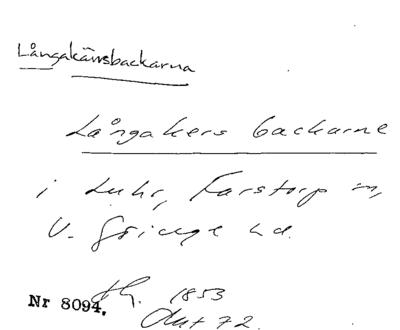 Långakärrsbackarna
Långakers backarne
i Luhr, Farstorp sn,
V. Göinge hd.
1853
Nr 8094. Akt 72.